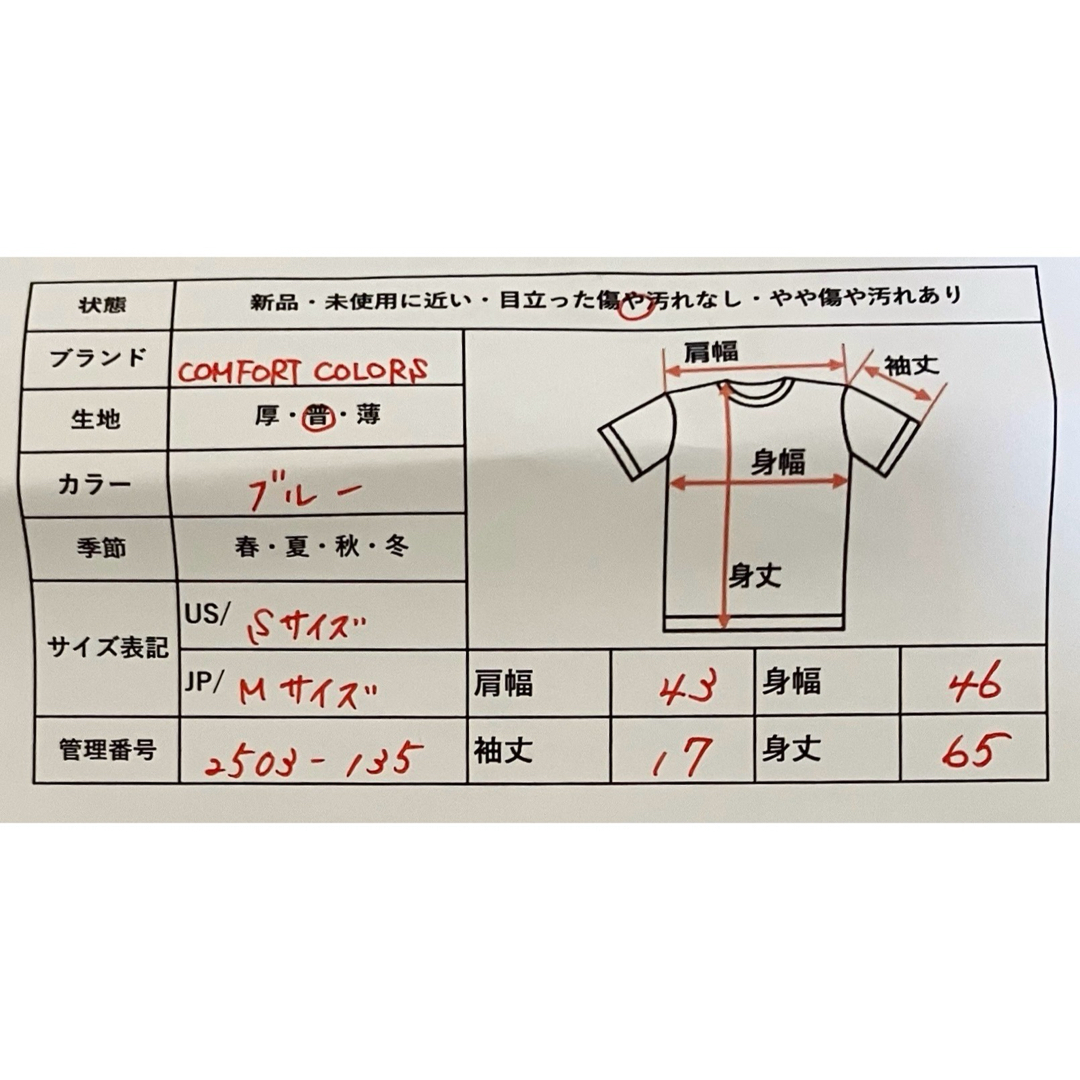 状態 新品・未使用に近い・目立った傷や汚れなし・やや傷や汚れあり
ブランド COMFORT COLORS
生地 厚・普・薄
カラー ブルー
季節 春・夏・秋・冬
サイズ表記 US/ Sサイズ
JP/ Mサイズ
管理番号 2503-135
肩幅
袖丈
身幅
身丈
肩幅 43 身幅 46
袖丈 17 身丈 65